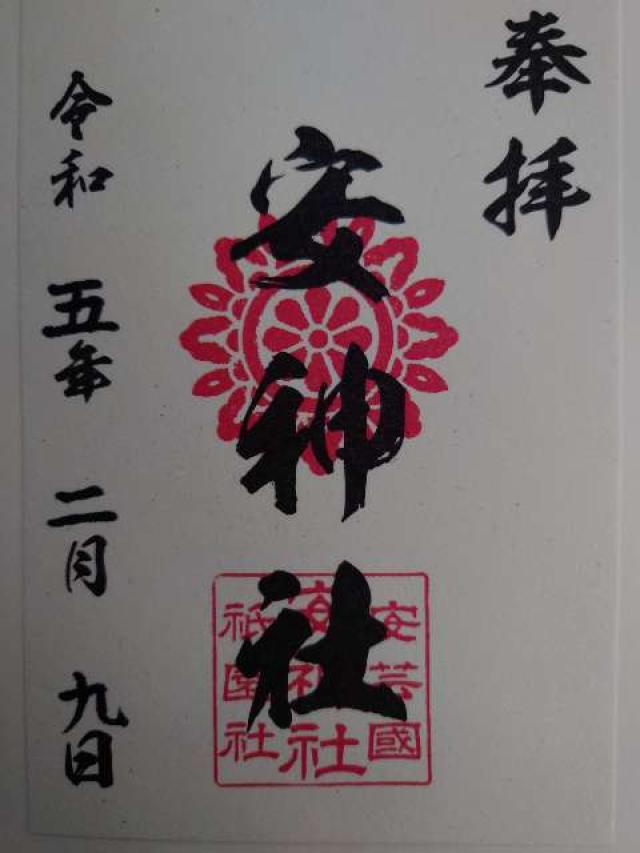 奉拝
安神社
安芸國
安神社
祇園社
令和五年二月九日